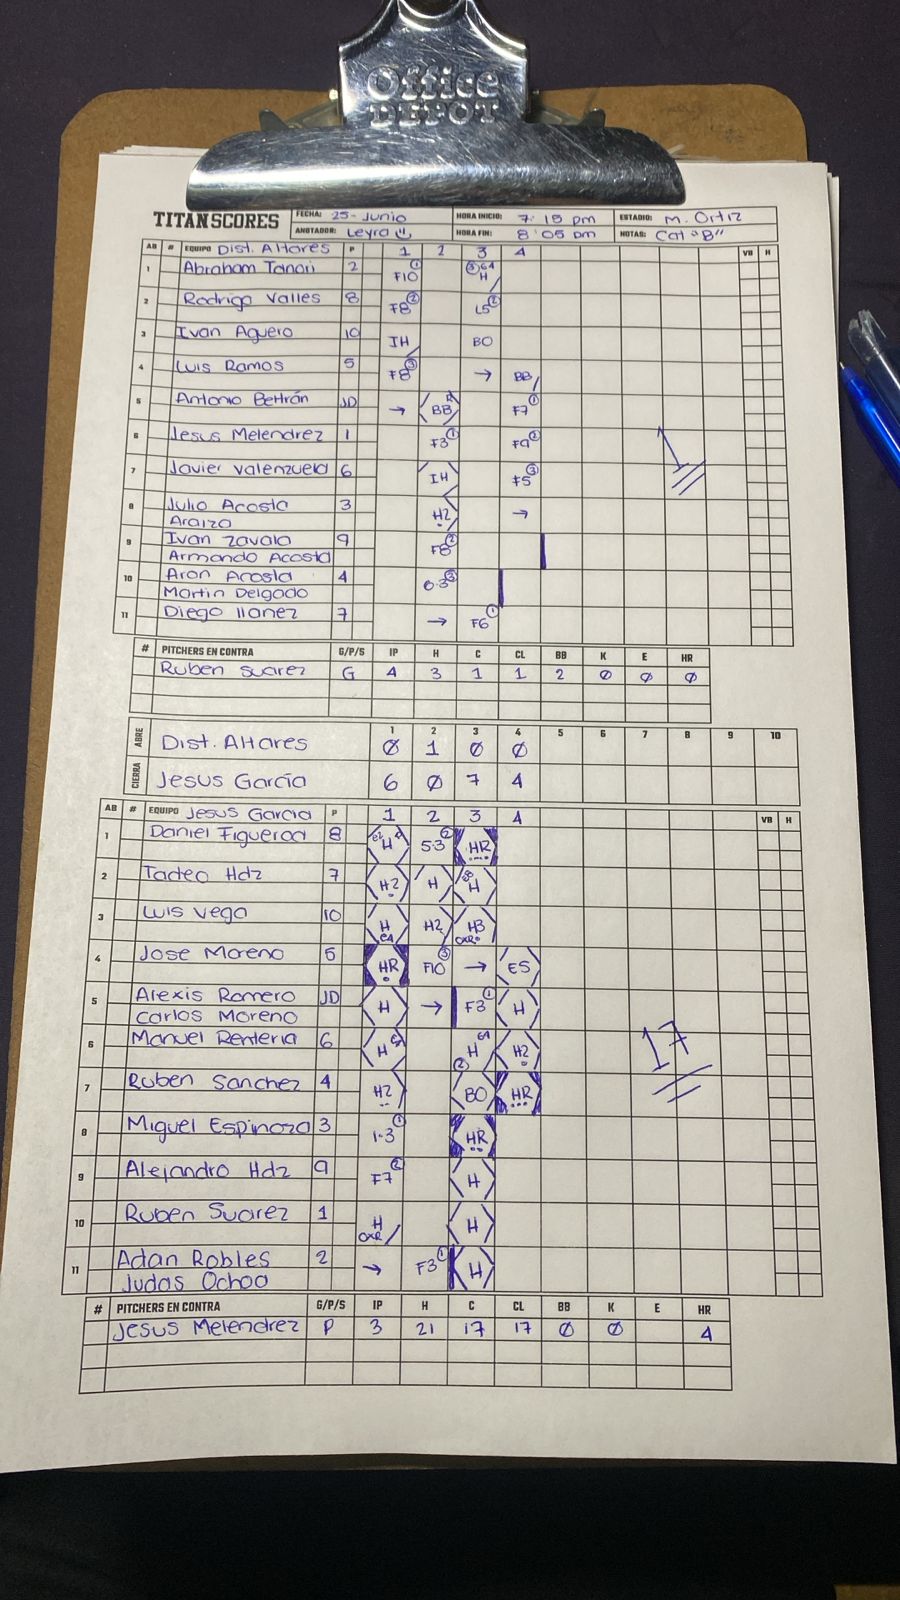 Office
DEPOT
TITANSCORES
FECHA: 25-Junio HORA INICIO: 7:15 pm ESTADIO: M. Ortiz
ANOTADOR: Leyra HORA FIN: 8:05 pm NOTAS: Cat "B"
AB # EQUIPO Dist. Altares P 1 2 3 4 VB H
1 Abraham Tanori 2 F10 ① ③ 64 H
2 Rodrigo Valles 8 F8 ② L5 ②
3 Ivan Aguero 10 IH BO
4 Luis Ramos 5 F8 ③ → BB
5 Antonio Beltrán JD → BB F7 ①
6 Jesus Melendrez 1 F3 ① F9 ②
7 Javier Valenzuela 6 IH F5 ③
8 Julio Acosta 3 H2 →
Araiza
9 Ivan Zavala 9 F8 ②
Armando Acosta
10 Aron Acosta 4 6-3 ③
Martin Delgado
11 Diego Ilanez 7 → F6 ①
1
# PITCHERS EN CONTRA G/P/S IP H C CL BB K E HR
Ruben Suarez G 4 3 1 1 2 Ø Ø Ø
1 2 3 4 5 6 7 8 9 10
ABRE Dist. Altares Ø 1 Ø Ø
CIERRA Jesus García 6 Ø 7 4
AB # EQUIPO Jesus Garcia P 1 2 3 4 VB H
1 Daniel Figueroa 8 H 5-3 ② HR
2 Tadeo Hdz 7 H2 H H
3 Luis Vega 10 H H2 H3
4 Jose Moreno 5 HR F10 ③ → E5
5 Alexis Romero JD H → F3 ① H
Carlos Moreno
6 Manuel Renteria 6 H H 64 ② H2
7 Ruben Sanchez 4 H2 BO HR
8 Miguel Espinoza 3 1-3 ① HR
9 Alejandro Hdz 9 F7 ② H
10 Ruben Suarez 1 H H
11 Adan Robles 2 → F3 ① H
Judas Ochoa
17
# PITCHERS EN CONTRA G/P/S IP H C CL BB K E HR
Jesus Melendrez P 3 21 17 17 Ø Ø 4